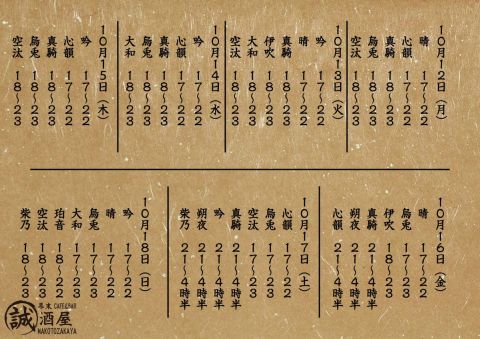 １０月１２日（月）
晴　１７～２２
烏兎　１７～２３
真騎　１７～２２
心韻　１７～２２
空汰　１８～２３
１０月１３日（火）
吟　１７～２２
晴　１７～２２
真騎　１８～２３
伊吹　１８～２３
大和　１８～２３
空汰　１８～２３
１０月１４日（水）
吟　１７～２２
心韻　１７～２２
真騎　１７～２２
烏兎　１８～２３
大和　１８～２３
１０月１５日（木）
吟　１７～２２
心韻　１７～２２
真騎　１８～２３
烏兎　１８～２３
空汰　１８～２３
１０月１６日（金）
晴　１７～２２
烏兎　１７～２３
伊吹　１８～２３
真騎　２１～４時半
朔夜　２１～４時半
心韻　２１～４時半
１０月１７日（土）
心韻　１７～２２
烏兎　１７～２３
空汰　１７～２３
真騎　２１～４時半
吟　２１～４時半
朔夜　２１～４時半
柴乃　２１～４時半
１０月１８日（日）
吟　１７～２２
晴　１７～２２
烏兎　１７～２３
大和　１７～２３
珀音　１８～２２
空汰　１８～２３
柴乃　１８～２３
幕末 CAFE&BAR
誠酒屋
MAKOTOZAKAYA